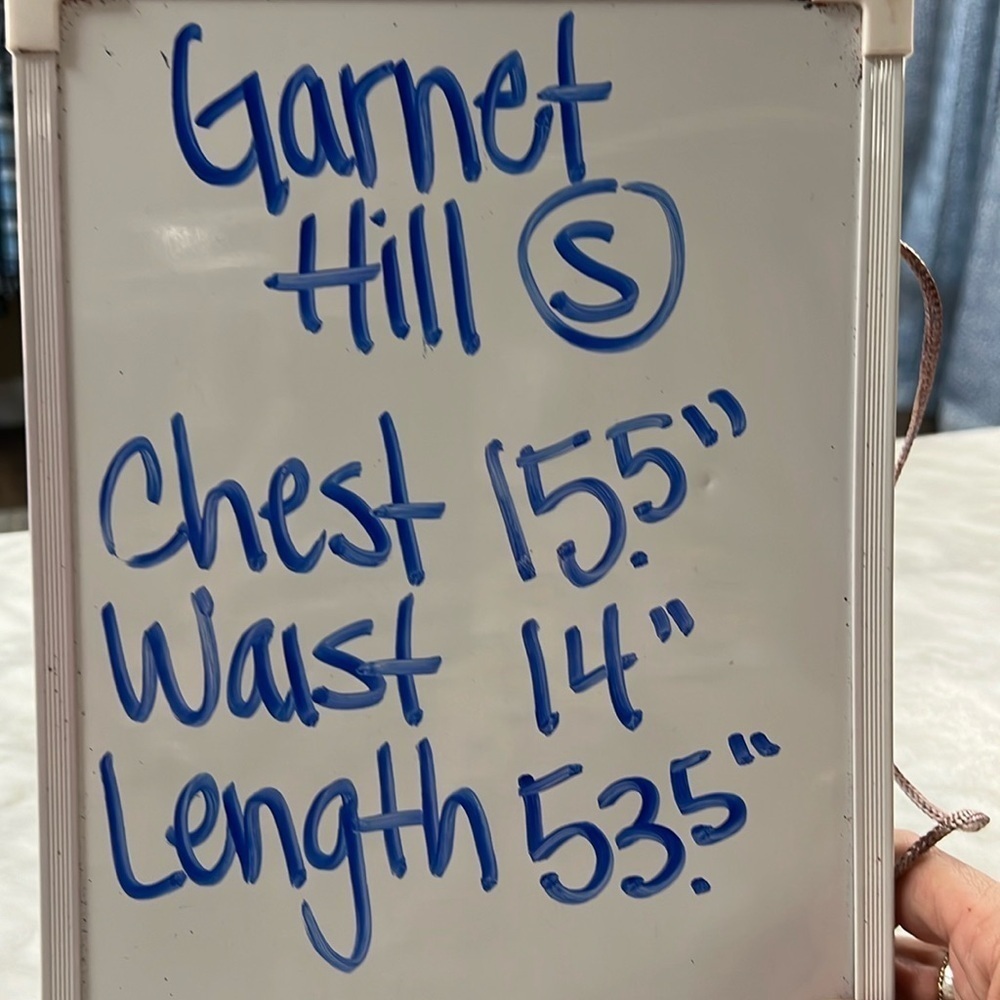 Garnet
Hill S
Chest 15.5"
Waist 14"
Length 53.5"